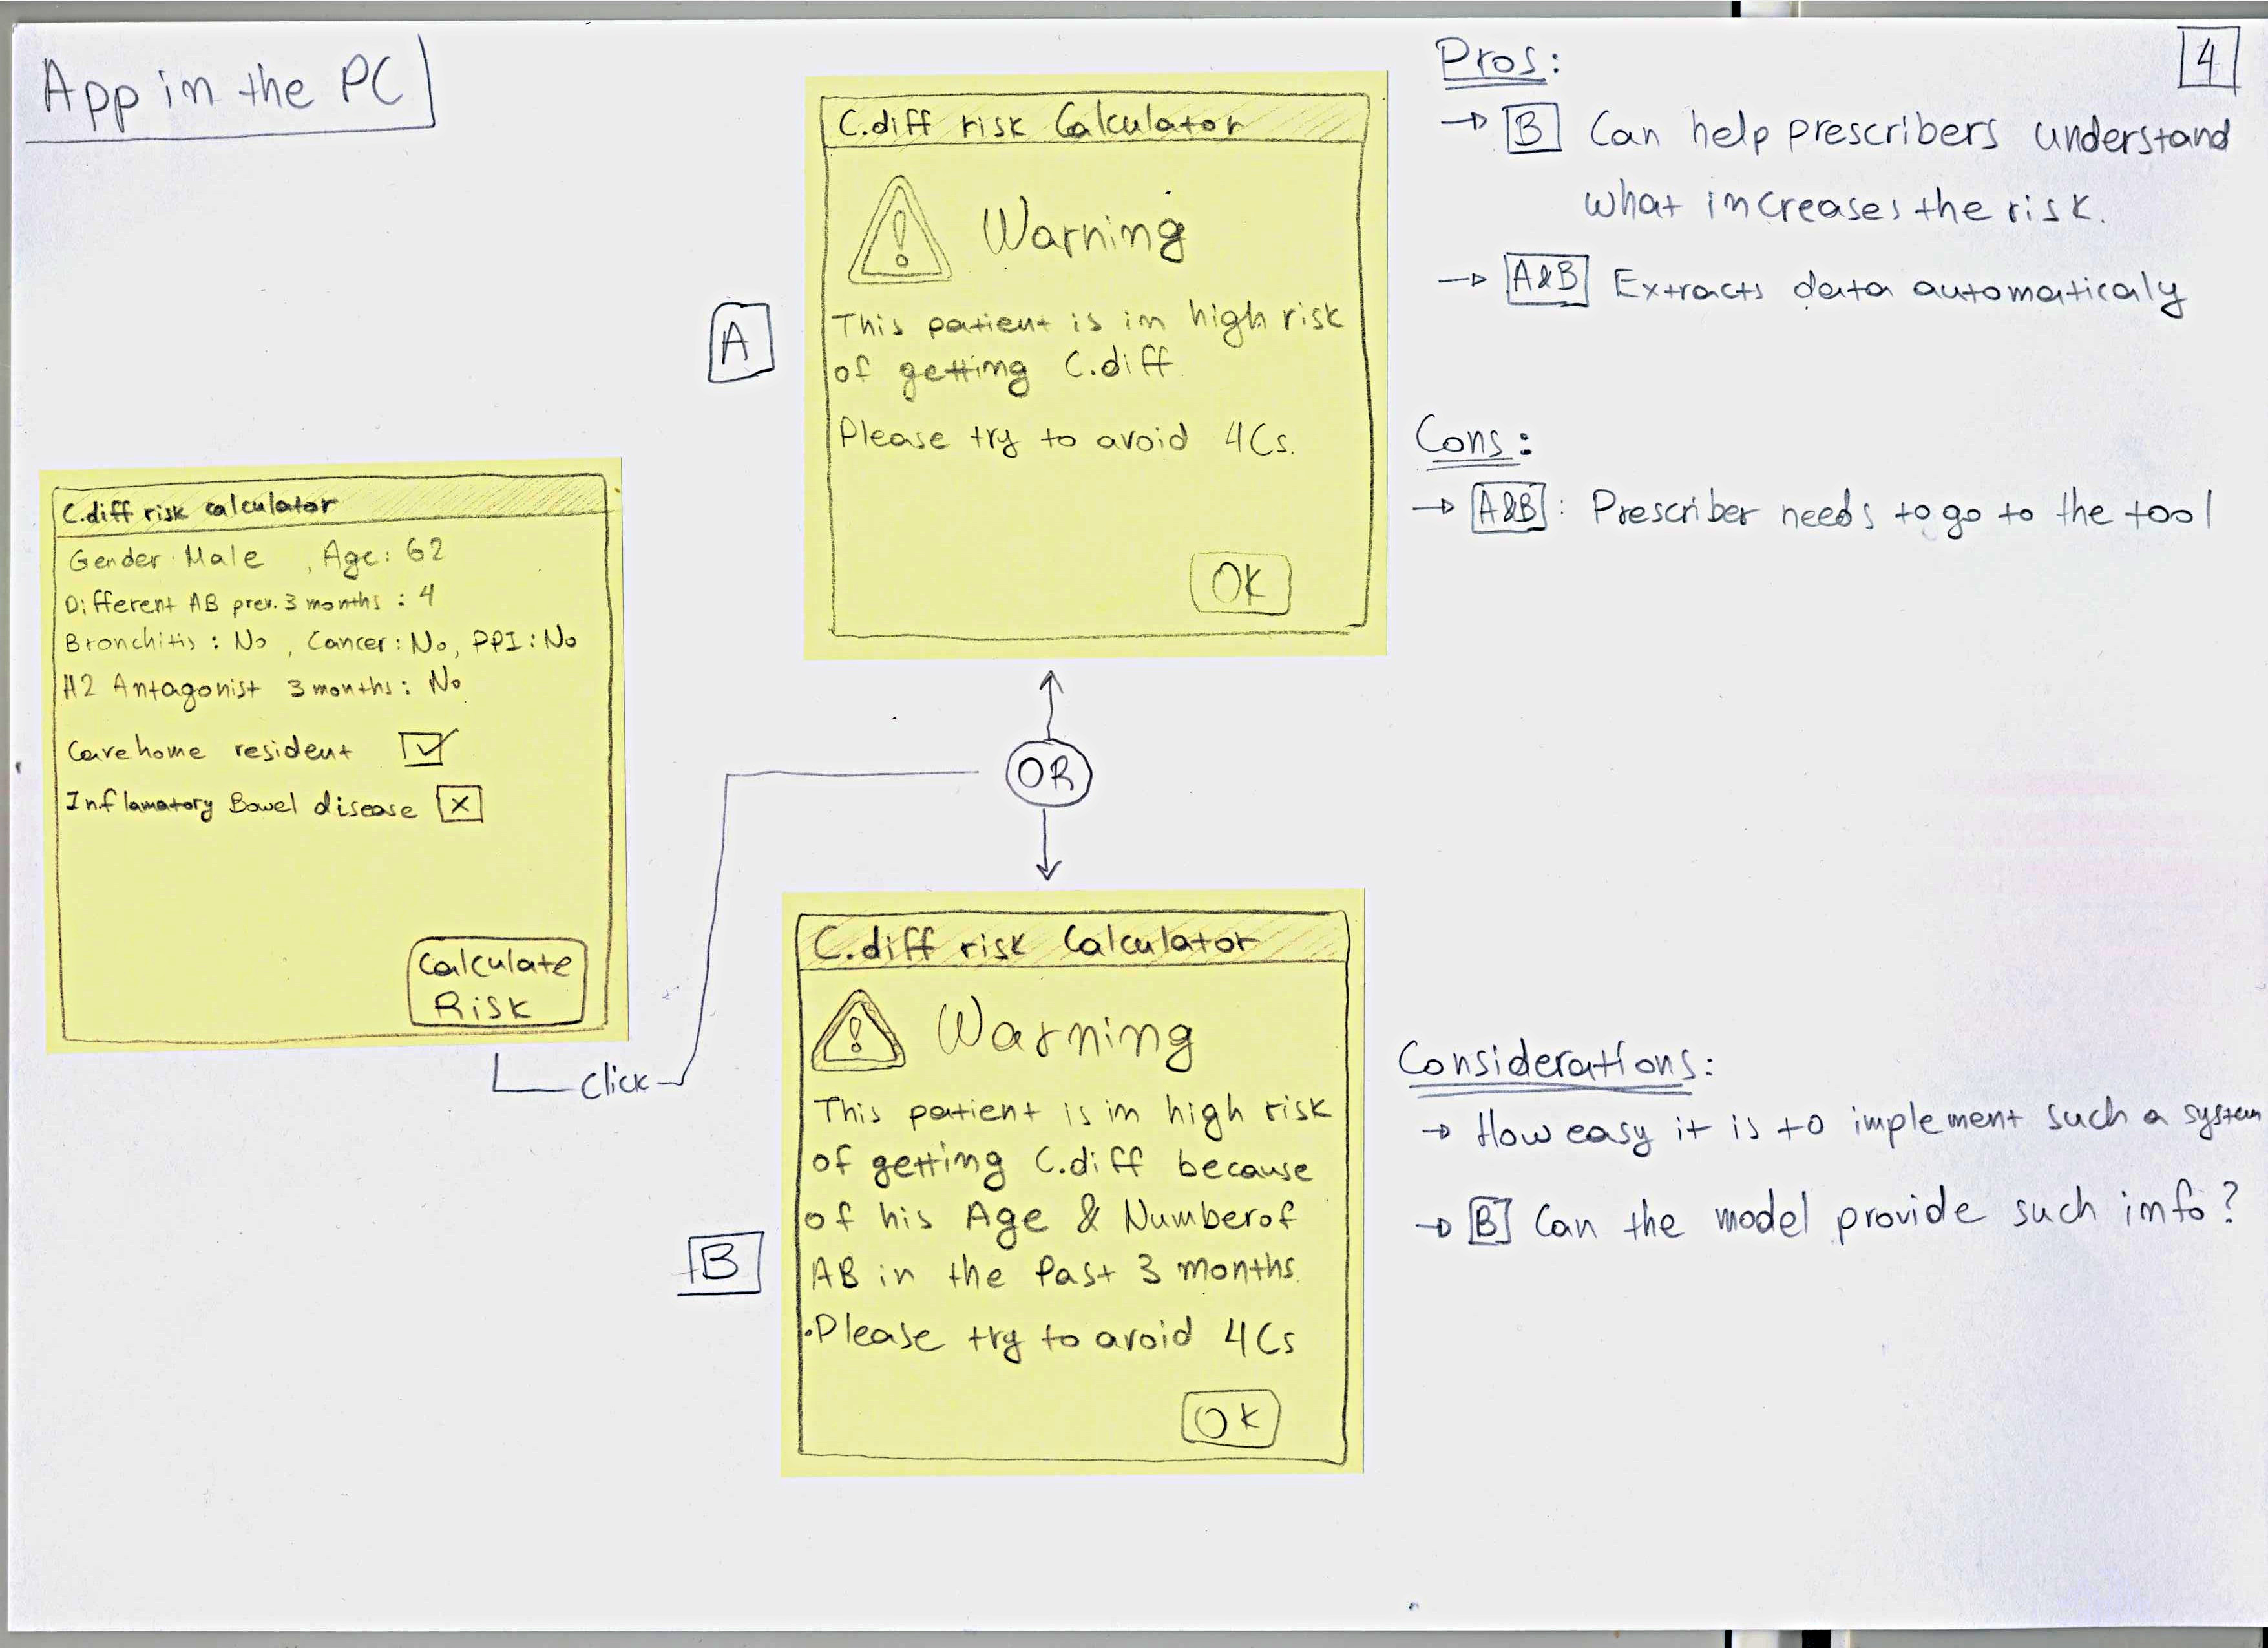 App in the PC
4
C.diff risk calculator
Gender: Male , Age: 62
Different AB prev. 3 months : 4
Bronchitis : No , Cancer: No, PPI: No
H2 Antagonist 3 months: No
Care home resident
Inflamatory Bowel disease X
Calculate
Risk
click
OR
A
C.diff risk Calculator
! Warning
This patient is in high risk
of getting C.diff.
Please try to avoid 4Cs.
OK
B
C.diff risk Calculator
! Warning
This patient is in high risk
of getting C.diff because
of his Age & Number of
AB in the Past 3 months.
.Please try to avoid 4Cs
OK
Pros:
→ B Can help prescribers understand
what increases the risk.
→ A&B Extracts data automaticaly
Cons:
→ A&B : Prescriber needs to go to the tool
Considerations:
→ How easy it is to implement such a system
→ B Can the model provide such info?